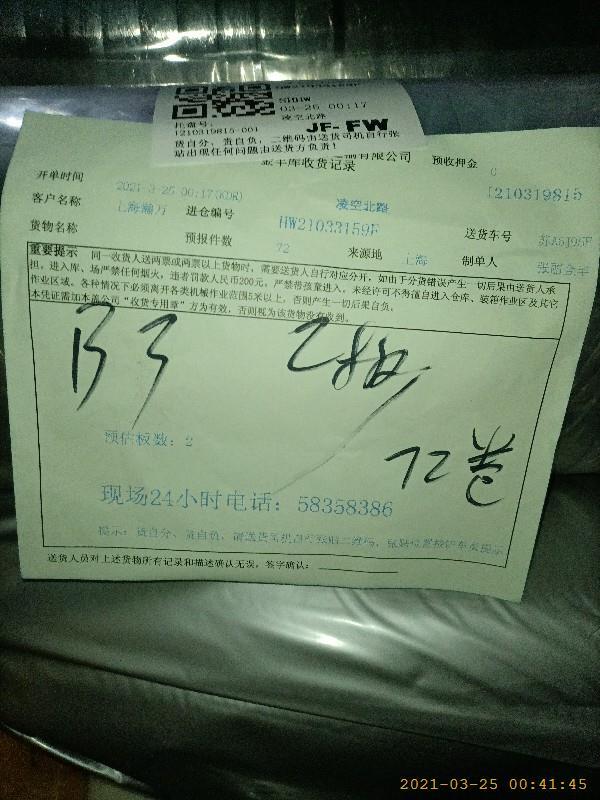 03-26 00:17
凌空北路
托盘号:
I210319815-001
JF-FW
货自分、责自负,二维码由送货司机自行张
贴出现任何问题由送货方负责!
有限公司
库收货记录
预收押金 0
开单时间 2021-3-25 00:17(KDR) 凌空北路 I210319815
客户名称 上海瀚万 进仓编号 HW21033159F 送货车号
货物名称 预报件数 72 来源地 上海 制单人
重要提示 同一收货人送两票或两票以上货物时,需要送货人自行对应分开,如由于分货错误产生一切后果由送货人承
担,进入库、场严禁任何烟火,违者罚款人民币200元。严禁带孩童进入,未经许可不得擅自进入仓库、装箱作业区及其它
作业区域。各种情况下必须离开各类机械作业范围5米以上,否则产生一切后果自负。
本凭证需加本盖公司“收货专用章”方为有效,否则视为该货物没有收到。
B3 2板
72卷
预估板数: 2
现场24小时电话: 58358386
提示: 货自分、责自负,请送货司机自行张贴二维码,
送货人员对上述货物所有记录和描述确认无误,签字确认:
2021-03-25 00:41:45